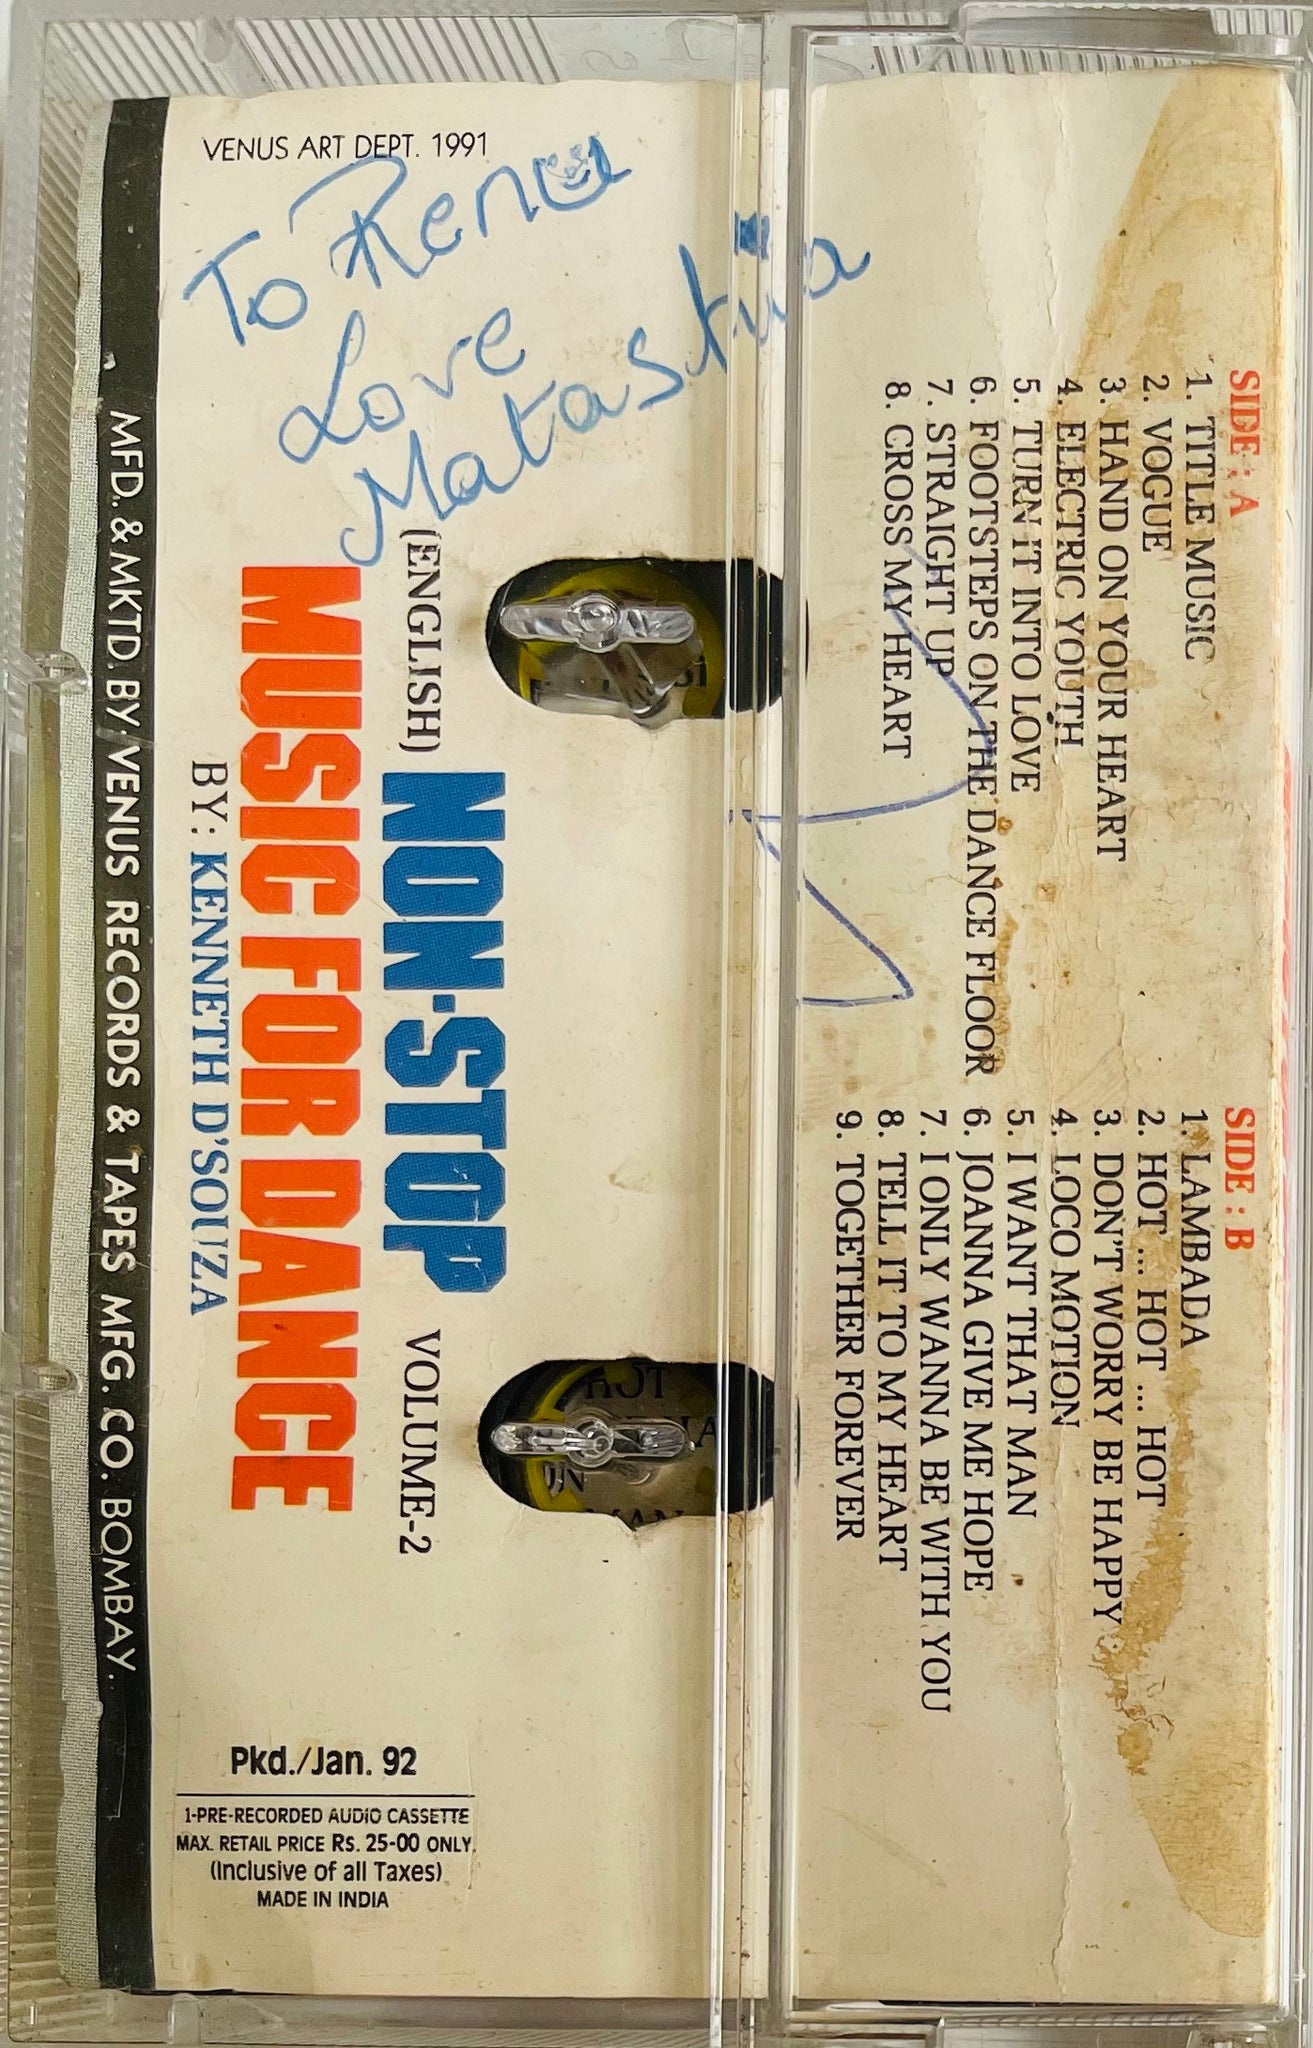 VENUS ART DEPT. 1991
To Renu
Love
(ENGLISH) NON-STOP VOLUME-2
MUSIC FOR DANCE
BY: KENNETH D'SOUZA
MFD. & MKTD. BY: VENUS RECORDS & TAPES MFG. CO. BOMBAY.
Pkd./Jan. 92
1-PRE-RECORDED AUDIO CASSETTE
MAX. RETAIL PRICE Rs. 25-00 ONLY.
(Inclusive of all Taxes)
MADE IN INDIA
SIDE : A
1. TITLE MUSIC
2. VOGUE
3. HAND ON YOUR HEART
4. ELECTRIC YOUTH
5. TURN IT INTO LOVE
6. FOOTSTEPS ON THE DANCE FLOOR
7. STRAIGHT UP
8. CROSS MY HEART
SIDE : B
1. LAMBADA
2. HOT ... HOT ... HOT
3. DON'T WORRY BE HAPPY
4. LOCO MOTION
5. I WANT THAT MAN
6. JOANNA GIVE ME HOPE
7. I ONLY WANNA BE WITH YOU
8. TELL IT TO MY HEART
9. TOGETHER FOREVER
HOT